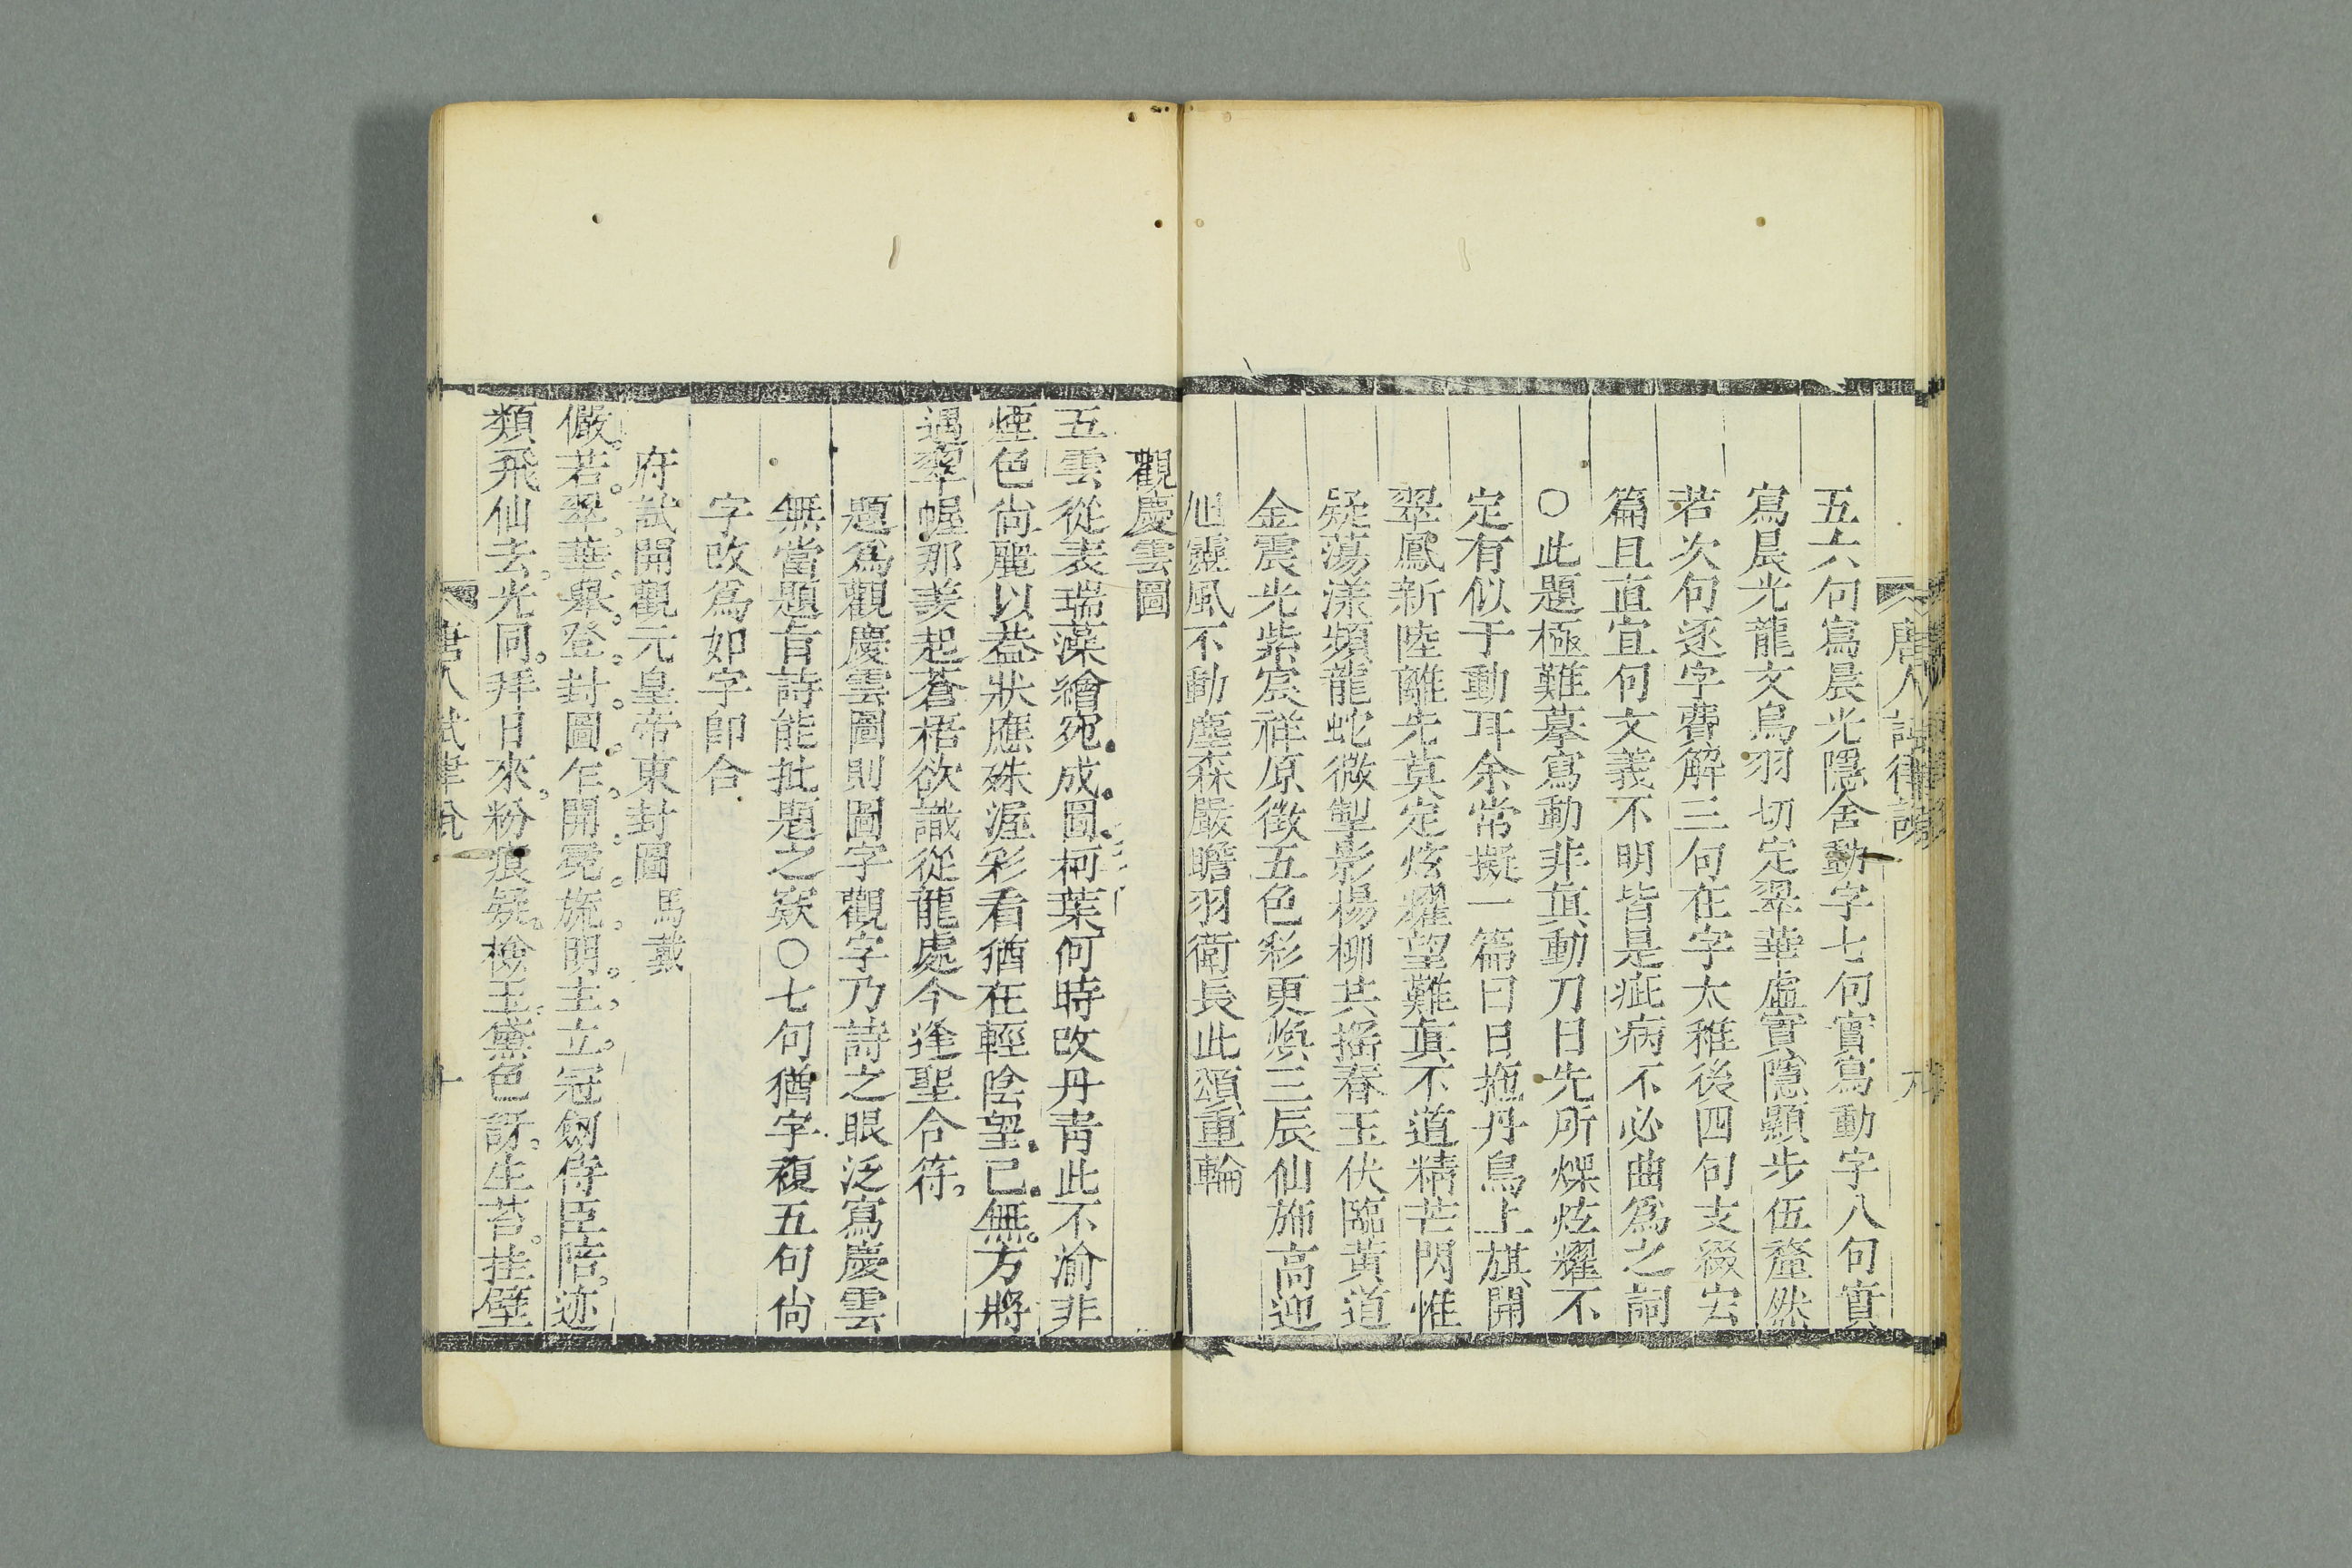 唐人試律說
五六句寫晨光隱含動字七句實寫動字八句實
寫晨光龍文鳥羽切定翠華虛實隱顯步伍釐然
若次句逐字費解三句在字太稚後四句支綴宏
篇且直宜句文義不明皆是疵病不必曲為之詞
○此題極難摹寫動非真動刀日先所爍炫耀不
定有似于動耳余常擬一篇曰日拖丹鳥上旗開
翠鳳新陸離光莫定炫耀望難真不道精芒閃惟
疑蕩漾頻龍蛇微掣影楊柳共搖春玉伏臨黃道
金震光紫宸祥原徵五色彩更煥三辰仙斾高迎
旭靈風不動塵森嚴瞻羽衛長此頌重輪
觀慶雲圖
五雲從表瑞藻繪宛成圖柯葉何時改丹青此不渝非
煙色尚麗以葢狀應殊渥彩看猶在輕陰望已無方將
遇翠幄那羨起蒼梧欲識從龍處今逢聖合符
題為觀慶雲圖則圖字觀字乃詩之眼泛寫慶雲
無當題旨詩能批題之窾○七句猶字複五句尚
字改為如字卽合
府試開觀元皇帝東封圖 馬戴
儼若翠華舉登封圖乍開冕旒明主立冠劒侍臣陪迹
類飛仙去光同拜日來粉痕疑檢玉黛色訝生苔挂壁
唐人試律說 十